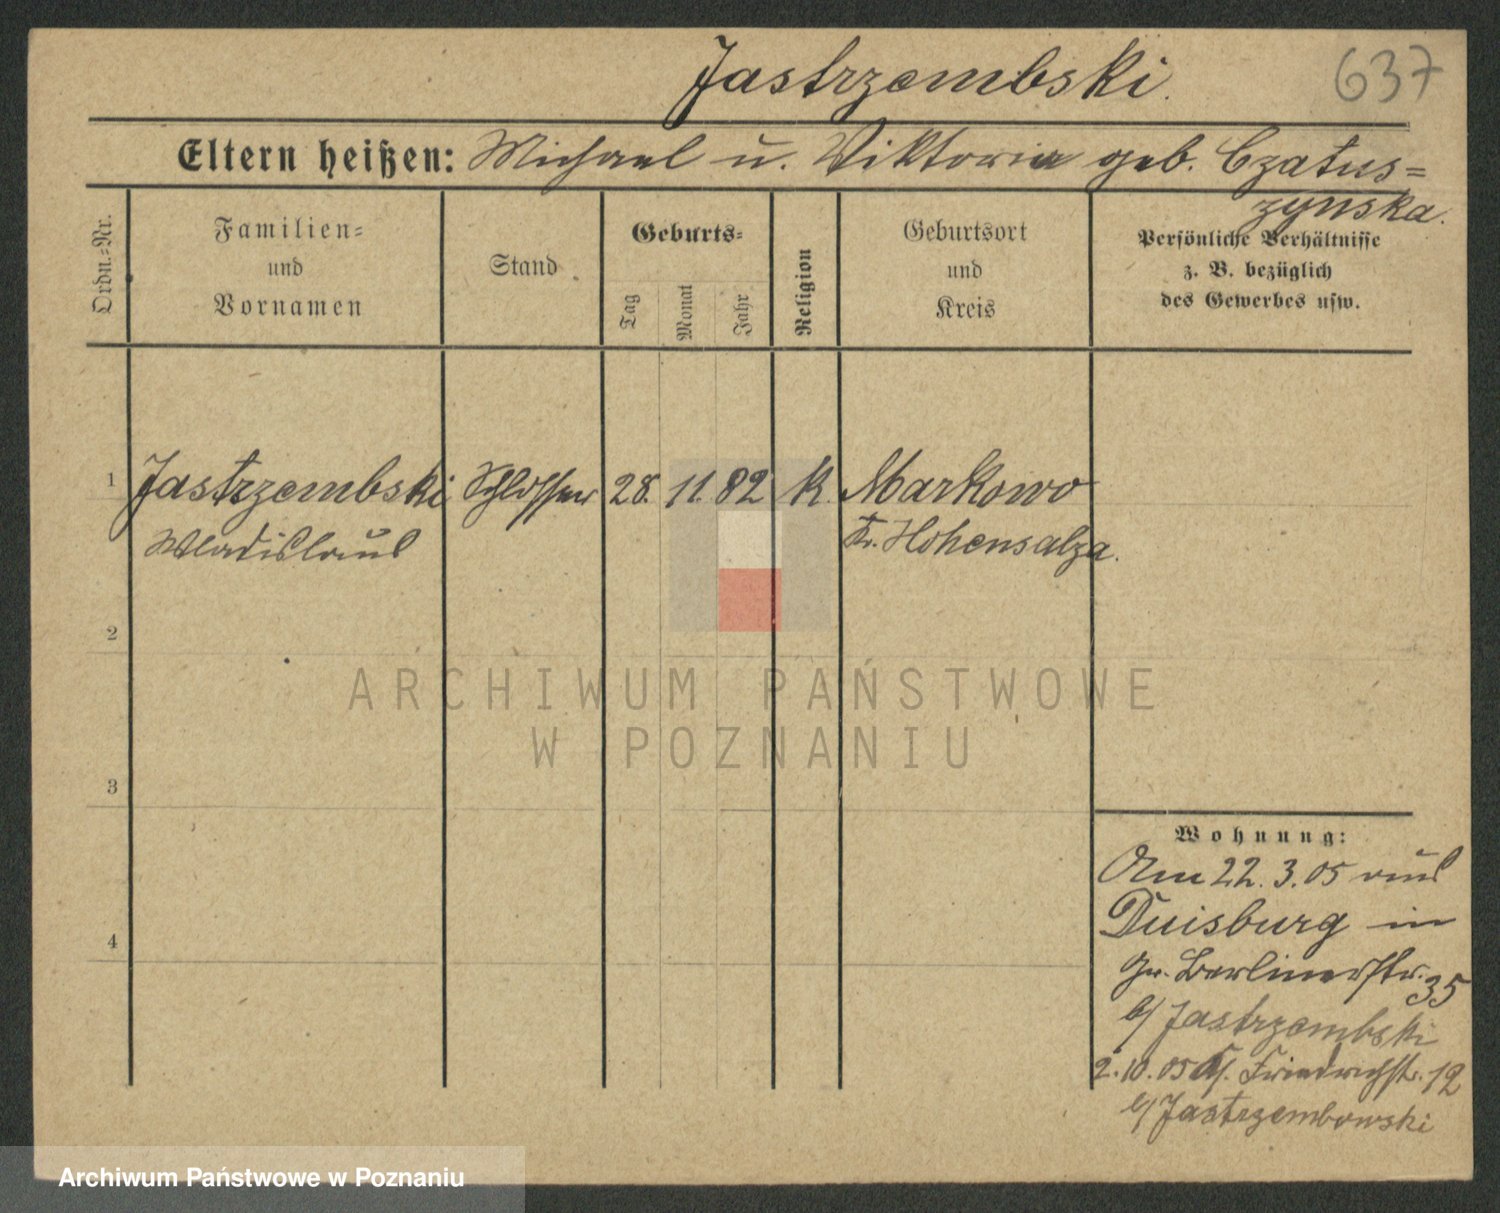 Jastrzembski.
637
Eltern heißen: Michael u. Viktoria geb. Czatus=
zynska.
Ordn.=Nr.
Familien=
und
Vornamen
Stand
Geburts=
Tag
Monat
Jahr
Religion
Geburtsort
und
Kreis
Persönliche Verhältnisse
z. B. bezüglich
des Gewerbes usw.
1 Jastrzembski Schlosser 28. 11. 82 k. Markowo
Wladislaus Kr. Hohensalza.
2
ARCHIWUM PAŃSTWOWE
W POZNANIU
3
Wohnung:
Am 22. 3. 05 aus
Duisburg in
Gr. Berlinerstr. 35
b/ Jastrzembski
2. 10. 05 Friedrichstr. 12
b/ Jastrzembowski
4
Archiwum Państwowe w Poznaniu